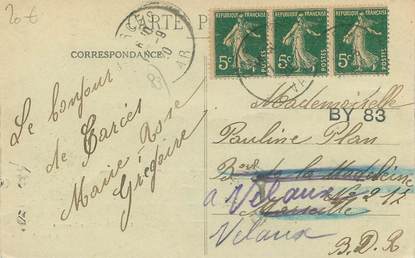 20 €
CARTE P
CORRESPONDANCE
REPUBLIQUE FRANÇAISE
5c
POSTES
REPUBLIQUE FRANÇAISE
5c
POSTES
REPUBLIQUE FRANÇAISE
5c
POSTES
Le bonjour
de Carcès
Marie Rose
Grégoire
Mademoiselle
BY 83
Pauline Plan
Bard de la Madeleine
à Velaux
Marseille
Velaux
B.D.R